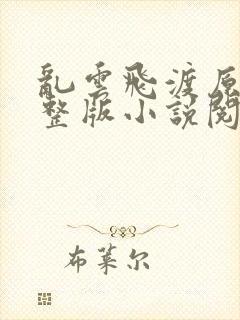 亂雲飛渡原
整版小說閱
布萊尔